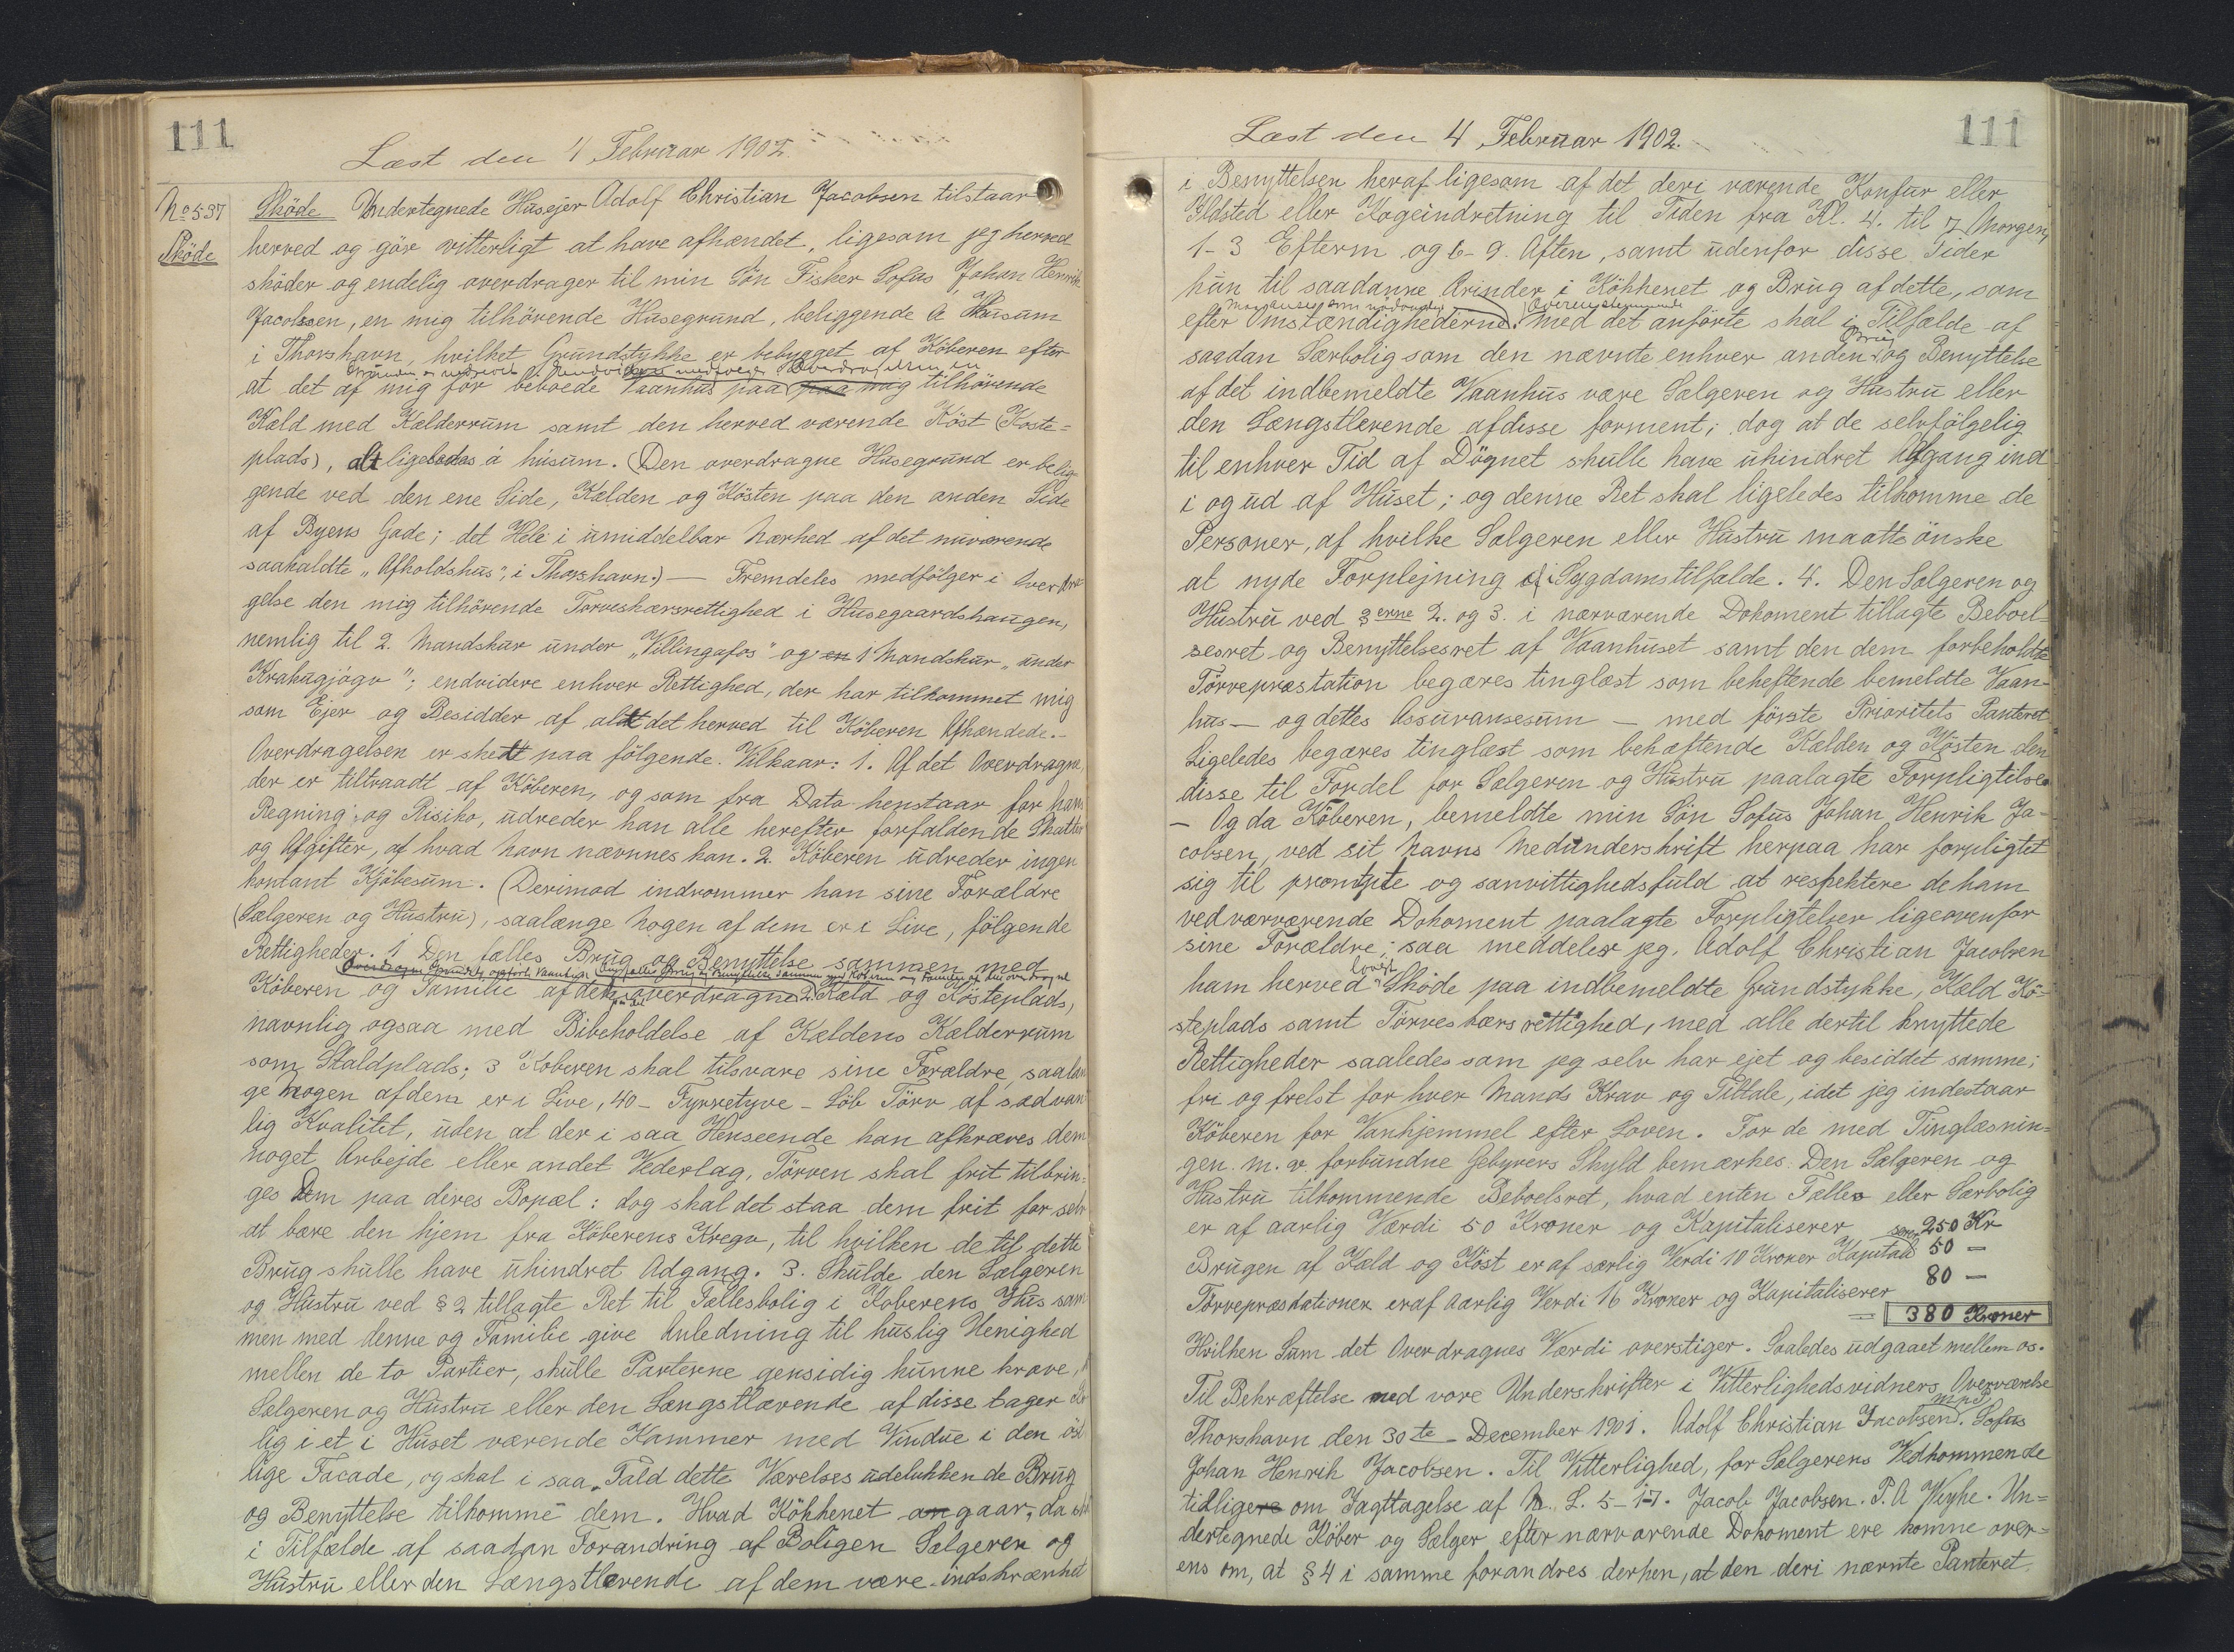 111
Læst den 4 Februar 1902.
No 537
Sköde
Sköde Undertegnede Husejer Adolf Christian Jacobsen tilstaar
herved og gör vitterligt at have afhændet, ligesom jeg herved
sköder og endelig overdrager til min Sön Fisker Sofus Johan Henrik
Jacobsen, en mig tilhörende Husegrund, beliggende á Húsum
i Thorshavn, hvilket Grundstykke er bebygget af Köberen efter
at det af mig för beboede Vaanhus paa
Grunden er nedrevet. Endvidere medfølger Overdragelsen en
paa mig tilhörende
Kæld med Kælderrum samt den herved værende Köst (Köste-
plads), alt ligeledes á húsum. (Den overdragne Husegrund er belig-
gende ved den ene Side, Kælden og Kösten paa den anden Side
af Byens Gade; det Hele i umiddelbar Nærhed af det nuværende
saakaldte "Afholdshus", i Thorshavn.) — Fremdeles medfölger i Overdra-
gelse den mig tilhörende Torveskærsrettighed i Husegaardshaugen,
nemlig til 2. Mandskur under "Villingafos" og en 1 Mandskur "under
Krakugjógv"; endvidere enhver Rettighed, der har tilkommet mig
som Ejer og Besidder af aldt det herved til Köberen Afhændede.-
Overdragelsen er skett paa fölgende Vilkaar: 1. Af det Overdragne,
der er tiltraadt af Köberen, og som fra Dato henstaar for hans
Regning og Risiko, udreder han alle herefter forfaldende Skatter
og Afgifter, af hvad Navn nævnnes kan. 2. Köberen udreder ingen
kontant Kjöbesum. (Derimod indrømmer han sine Forældre
(Sælgeren og Hustru), saalænge Nogen af dem er i Live, fölgende
Rettigheder. 1 Den fælles Brug og Benyttelse sammen med
Köberen og Familie af den overdragne 2. Kæld og Kösteplads,
navnlig ogsaa med Bibeholdelse af Kældens Kælderrum
som Staldplads; 3 Köberen skal tilsvare sine Forældre, saalæn-
ge Nogen af dem er i Live, 40 - Fyrretyve - Löb Törv af sædvan-
lig Kvalitet, uden at der i saa Henseende kan afkræves dem
noget Arbejde eller andet Vederlag, Törven skal frit tilbrin-
ges dem paa deres Bopæl: dog skal det staa dem frit for selv
at bære den hjem fra Köberens Kregv, til hvilken de til dette
Brug skulle have uhindret Adgang. 3. Skulde den Sælgeren
og Hustru ved § 2 tillagte Ret til Fællesbolig i Köberens Hus sam-
men med denne og Familie give Anledning til huslig Uenighed
mellen de to Partier, skulle Parterne gensidig kunne kræve,
Sælgeren og Hustru eller den Længstlævende af disse tager
lig i et i Huset værende Kammer med Vindue i den öst-
lige Facade, og skal i saa Fald dette Værelses udelukkende Brug
og Benyttelse tilkomme dem. Hvad Kökkenet angaar, da
i Tilfælde af saadan Forandring af Boligen Sælgeren og
Hustru eller den Længstlevende af dem være indskrænket
111
Læst den 4 Februar 1902.
i Benyttelsen heraf ligesom af det deri værende Komfur eller
Ildsted eller Kogeindretning til Tiden fra Kl. 4. til 7 Morgen,
1-3 Efterm og 6-9. Aften, samt udenfor disse Tider
kun til saadanne Ærinder i Kökkenet og Brug af dette, som
efter Omstændighederne
Overensstemmende
med det anförte skal i Tilfælde af
saadan Særbolig som den nævnte enhver anden
Brug
og Benyttelse
af det indbemeldte Vaanhus være Sælgeren og Hustru eller
den Længstlevende af disse forment; dog at de selvfölgelig
til enhver Tid af Dögnet skulle have uhindret Adgang ind
i og ud af Huset; og denne Ret skal ligeledes tilkomme de
Personer, af hvilke Sælgeren eller Hustru maatte önske
at nyde Forplejning i Sygdomstilfælde. 4. Den Sælgeren og
Hustru ved §erne 2. og 3. i nærværende Dokoment tillagte Beboel-
sesret og Benyttelsesret af Vaanhuset samt den dem forbeholdte
Törvepræstation begæres tinglæst som beheftende bemeldte Vaan-
hus — og dettes Assuransesum — med förste Prioritets Panteret.
Ligeledes begæres tinglæst som behæftende Kælden og Kösten den
disse til Fordel for Sælgeren og Hustru paalagte Forpligtilse
— Og da Köberen, bemeldte min Sön Sofus Johan Henrik Ja-
cobsen, ved sit Navns Nedunderskrift herpaa har forpligtet
sig til promte og samvittighedsfuld at respektere de ham
ved værværende Dokoment paalagte Forpligtelser ligeovenfor
sine Forældre; saa meddeler jeg, Adolf Christian Jacobsen
ham herved Sköde paa indbemeldte Grundstykke, Kæld Kö-
steplads samt Törveskærsrettighed, med alle dertil knyttede
Rettigheder saaledes som jeg selv har ejet og besiddet samme;
fri og frelst for hver Mands Krav og Tiltale, idet jeg indestaar
Köberen for Vanhjemmel efter Loven. For de med Tinglæsnin-
gen m. v. forbundne Gebyrers Skyld bemærkes. Den Sælgeren og
Hustru tilkommende Beboelsret, hvad enten Fælles eller Særbolig
er af aarlig Værdi 50 Kroner og Kapitaliserer 250 Kr
Brugen af Kæld og Köst er af særlig Verdi 10 Kroner Kapitali 50 —
Törvepræstationen er af Aarlig Verdi 16 Kroner og Kapitaliserer 80 —
= 380 Kroner
Hvilken Sum det Overdragnes Værdi overstiger. Saaledes udgaaet mellem os.
Til Bekræftelse med vore Underskrifter i Vitterlighedsvidners Overværelse
Thorshavn den 30te - December 1901. Adolf Christian Jacobsen
mpS
. Sofus
Johan Henrik Jacobsen. Til Vitterlighed, for Sælgerens Vedkommende
tidligere om Iagttagelse af N. L. 5-1-7. Jacob Jacobsen. P. A Weyhe. Un-
dertegnede Köber og Sælger efter nærværende Dokoment ere komne over-
ens om, at § 4 i samme forandres derhen, at den deri nævnte Panteret